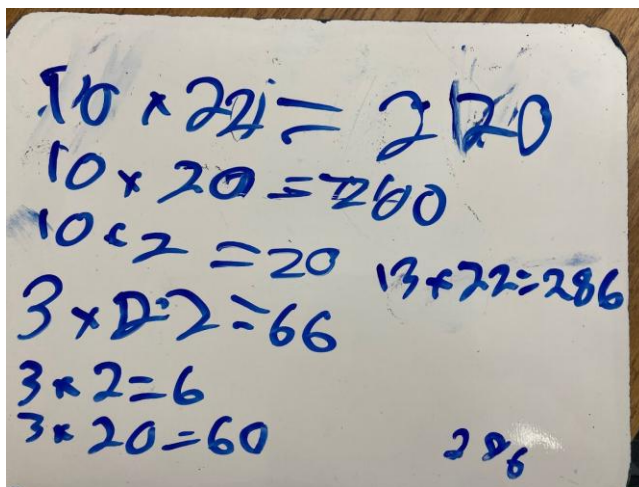 10 × 22 = 220
10 × 20 = 200
10 × 2 = 20
13 × 22 = 286
3 × 22 = 66
3 × 2 = 6
3 × 20 = 60
286